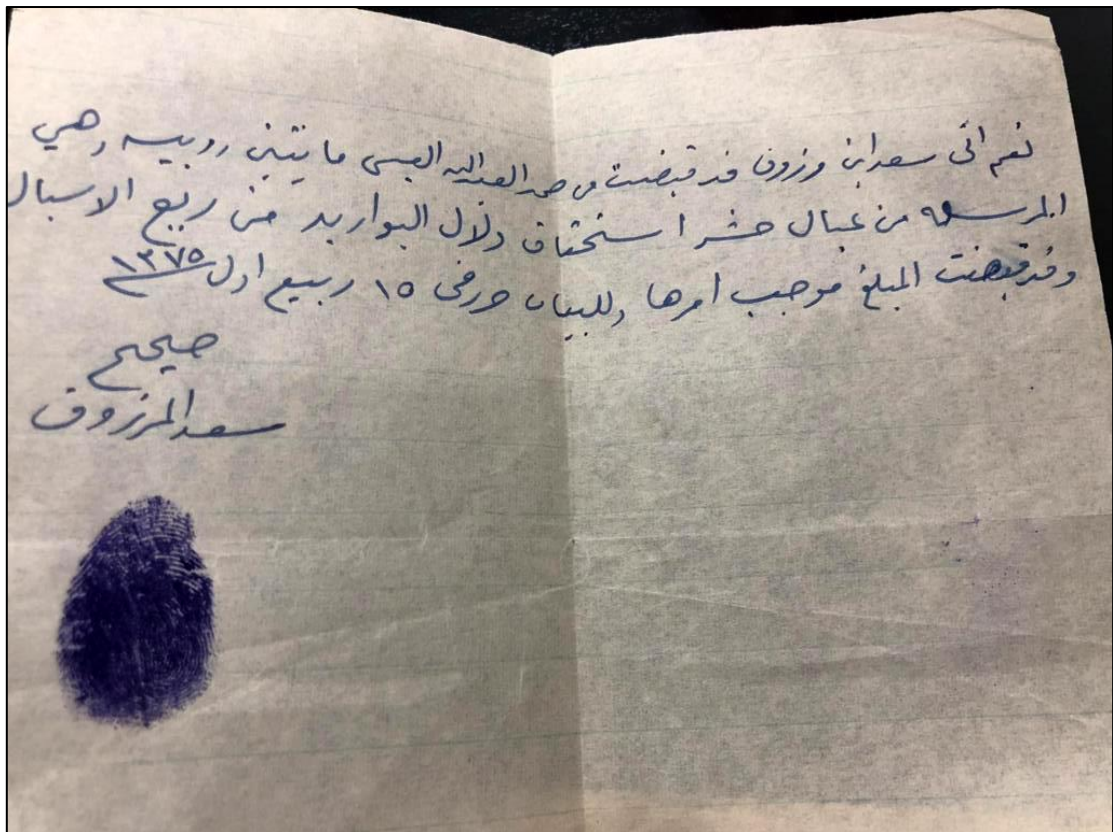 نعم اني سعد ابن مرزوق قد قبضت من حمد العبدالله العيسى مايتين روبيه وهي
المرسله من عيال حشر استحقاق دلال البواريد من ريع الاسبال
وقد قبضت المبلغ موجب امرها وللبيان حررفي ١٥ ربيع اول ١٣٧٥
صحيح
سعد المرزوق